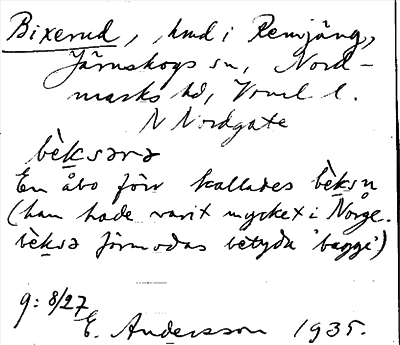 Bixerud, hmd i Remjäng,
Järnskogs sn, Nord-
marks hd, Vrml l.
N Nordgate
bèk̲sərə
En åbo förr kallades bèk̲sn
(han hade varit mycket i Norge.
bèk̲sə förmodas betyda 'bagge')
g: 8/27
E. Andersson 1935.